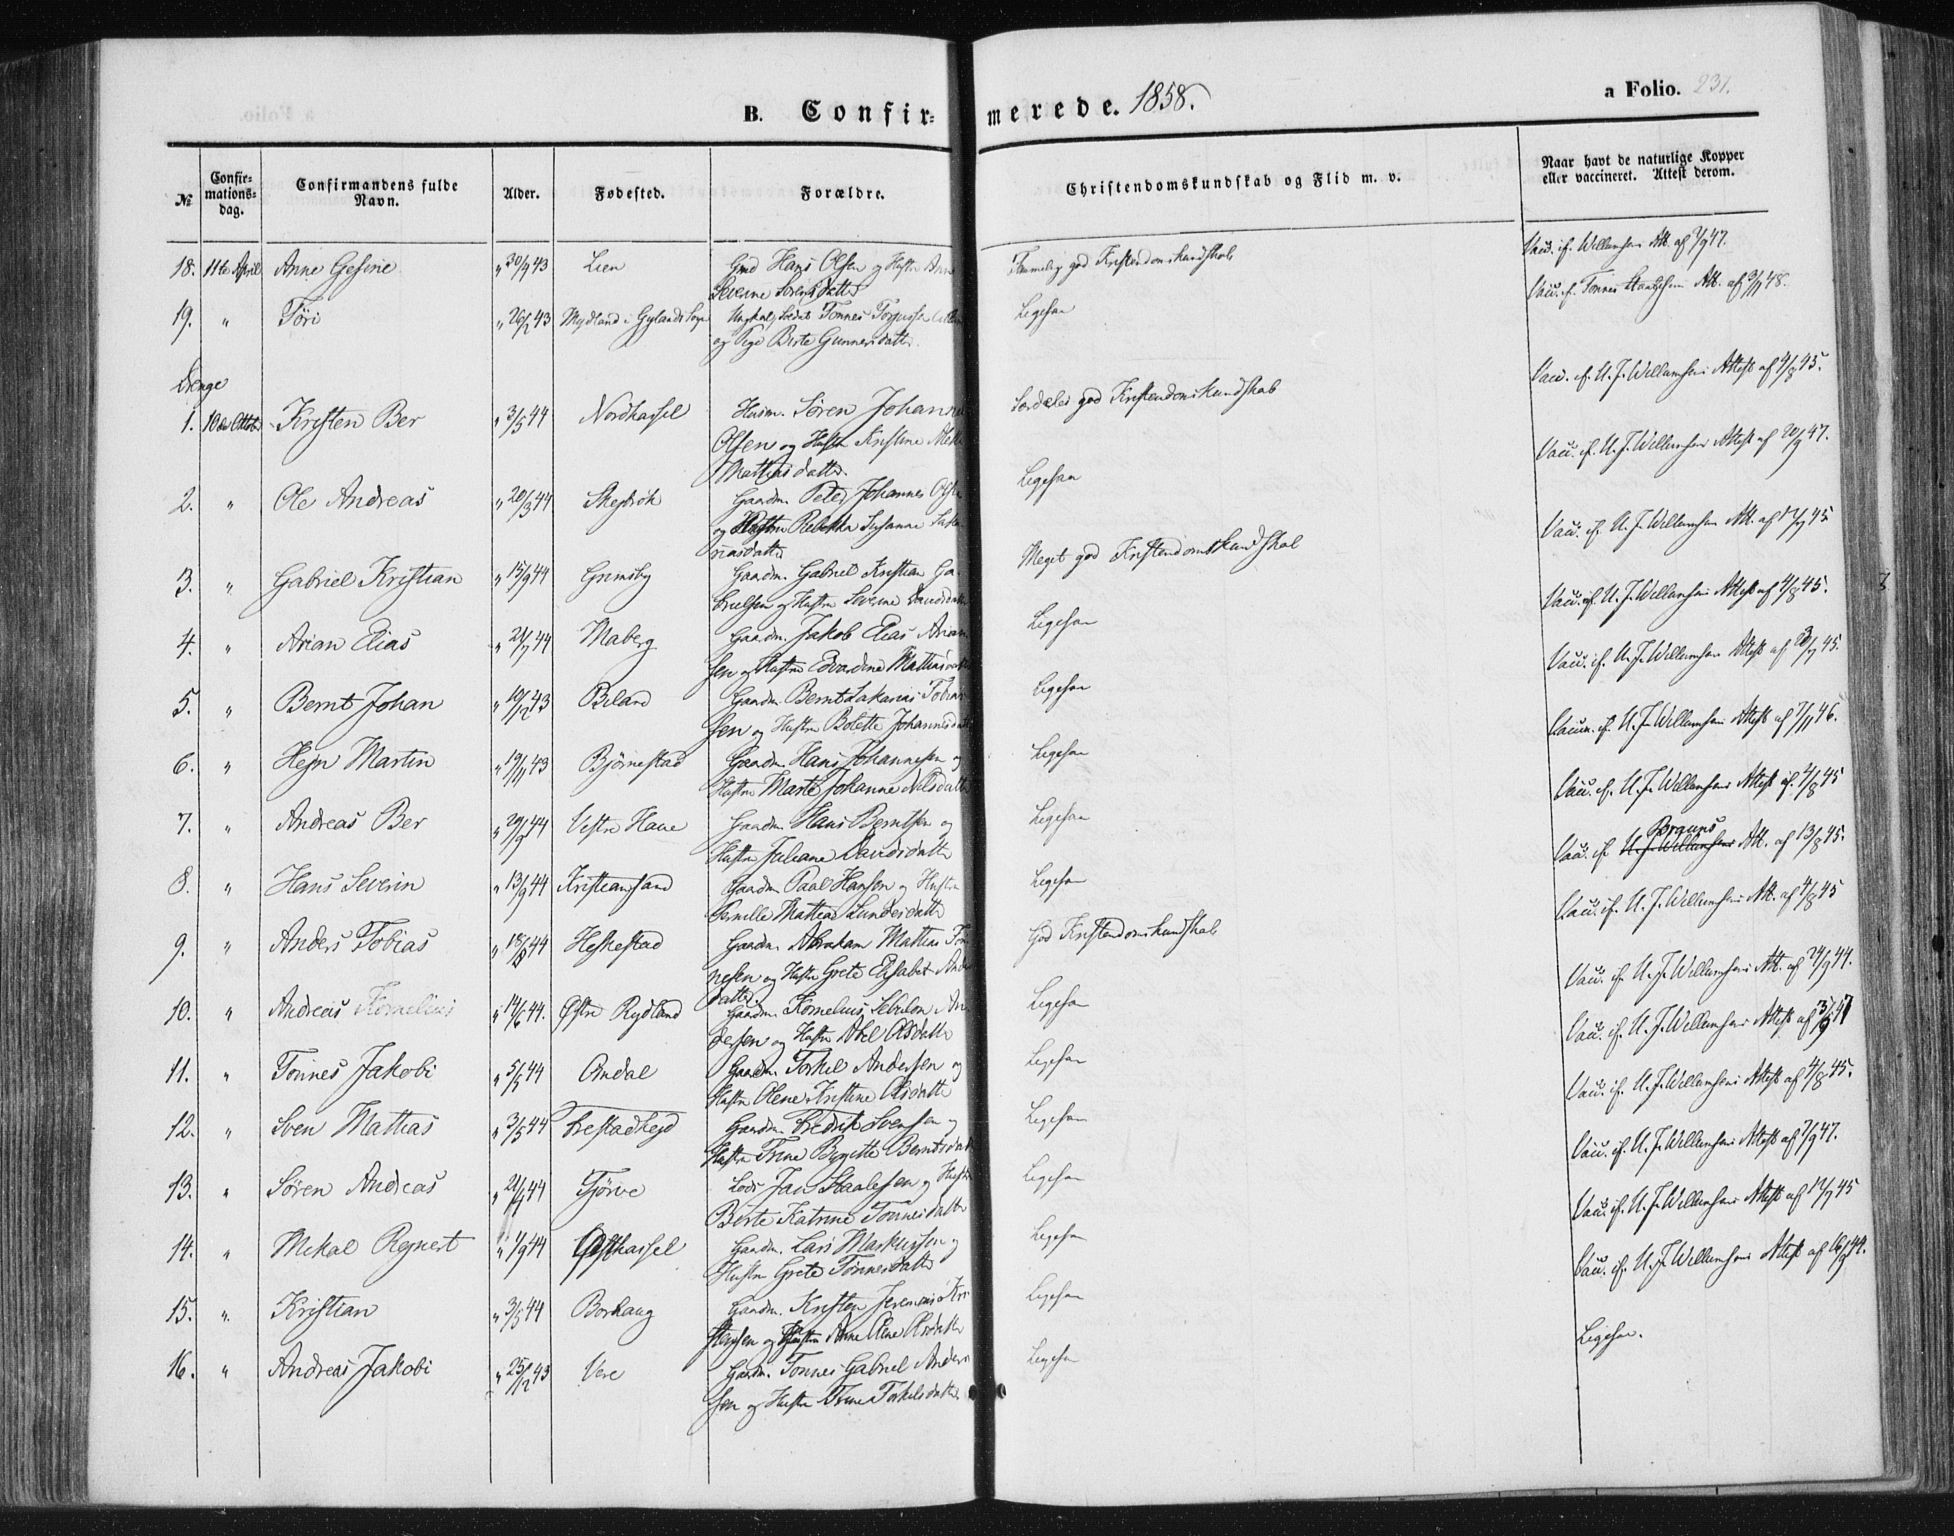 B. Confir-
merede. 1858.
a Folio. 231.
№
Confir-
mations-
dag.
Confirmandens fulde
Navn.
Alder.
Fødested.
Forældre.
Christendomskundskab og Flid m. v.
Naar havt de naturlige Kopper
eller vaccineret. Attest derom.
18. 11te April Anne Gesine " 30/9 43 Lien Gmd Hans Olsen og Hustr Anne
Severine Sørensdatter
Temmelig god Kristendomskundskab
Vacc. if. Willumsens Att. af 7/9 47.
19. " Tøri " 26/2 43 Mydland i Gylands Sogn Ungkarl Soldat Tønnes Torjussen
og Pige Birte Gunnersdatter
Ligesaa
Vacc. if. Tønnes Att. af 48.
Drenge
1. 10de Oktob. Kristen Ber " 3/5 44 Nordhassel Husm. Søren Johannes
Olsen og Hustr Kristine Mette
Mathiasdatter
Særdeles god Kristendomskundskab
Vacc. if. U. J. Willumsens Attest af 4/8 45.
2. " Ole Andreas " 20/3 44 Skeibrok Gaardm. Peter Johannes Olsen
og Hustru Rebekka Susanne Saka-
riasdatter
Ligesaa
Vacc. if. U. J. Willumsens Attest af 20/9 47.
3. " Gabriel Kristian " 15/9 44 Grimsby Gaardm. Gabriel Kristian Ga-
brielsen og Hustru Severine Davidsdatter
Meget god Kristendomskundskab
Vacc. if. U. J. Willumsens Att. af 17/7 45
4. " Arian Elias " 21/7 44 Maberg Gaardm. Jakob Elias Arian-
sen og Hustru Edvardine Mathiasdatter
Ligesaa
Vacc. if. U. J. Willumsens Attest af 4/8 45.
5. " Bernt Johan " 10/12 43 Biland Gaardm. Bernt Sakarias Tobias-
sen og Hustru Bolette Johannesdatter
Ligesaa
Vacc. if. U. J. Willumsens Attest af 45.
6. " Hejn Martin " 19/11 43 Bjørnestad Gaardm. Hans Johannesen og
Hustru Marte Johanne Nilsdatter
Ligesaa
Vaccin. if. U. J. Willumsens Attest af 7/11 46.
7. " Andreas Ber " 29/9 44 Vestre Haue Gaardm. Hans Berntsen og
Hustru Juliane Davidsdatter
Ligesaa
Vacc. if. U. J. Willumsens Attest af 4/8 45
8. " Hans Severin " 13/9 44 Kristiansand Gaardm. Paal Hansen og Hustru
Pernille Mattea Lundesdatter
Ligesaa
Vacc. if. U. J. Willumsens Brauns Att. af 13/8 45.
9. " Anders Tobias " 18/8 44 Heskestad Gaardm. Abraham Mattias Tøn-
nesen og Hustru Grete Elisabet Anders-
datter
God Kristendomskundskab
Vacc. if. U. J. Willumsens Att. af 4/8 45
10. " Andreas Kornelius " 14/6 44. Østre Rydland Gaardm. Kornelius Sebulon An-
dersen og Hustru Abel Olsdatter
Ligesaa
Vacc. if. U. J. Willumsens Att. af 24/9 44.
11. " Tønnes Jakobi " 5/5 44 Ondal Gaardm. Torkel Andersen og
Hustru Olene Kristine Olsdatter
Ligesaa
Vacc. if. U. J. Willumsens Attest af 47
12. " Sven Mattias " 3/5 44 Frestadhejd Gaardm. Fredrik Svensen og
Hustru Trine Birgitte Berntsdatter
Ligesaa
Vacc. if. U. J. Willumsens Attest af 4/8 45.
13. " Søren Andreas " 21/7 44 Tjørve Lods Jan Staalesen og Hustru
Birte Katrine Tønnesdatter
Ligesaa
Vacc. if. U. J. Willumsens Attest af 7/9 47.
14. " Mikal Rejnert " 1/9 44 Østhassel Gaardm. Lars Markussen og
Hustru Grete Tønnesdatter
Ligesaa
Vacc. if. U. J. Willumsens Attest af 17/7 45
15. " Kristian " 3/5 44 Borhaug Gaardm. Kristen Jeremias Kri-
stensen og Hustru Anne Elene Olsdatter
Ligesaa
Vacc. if. U. J. Willumsens Attest af 16/9 44.
16. " Andreas Jakobi " 25/12 43 Vere Gaardm. Tønnes Gabriel Anders-
sen og Hustru Trine Torkelsdatter
Ligesaa
Ligesaa.